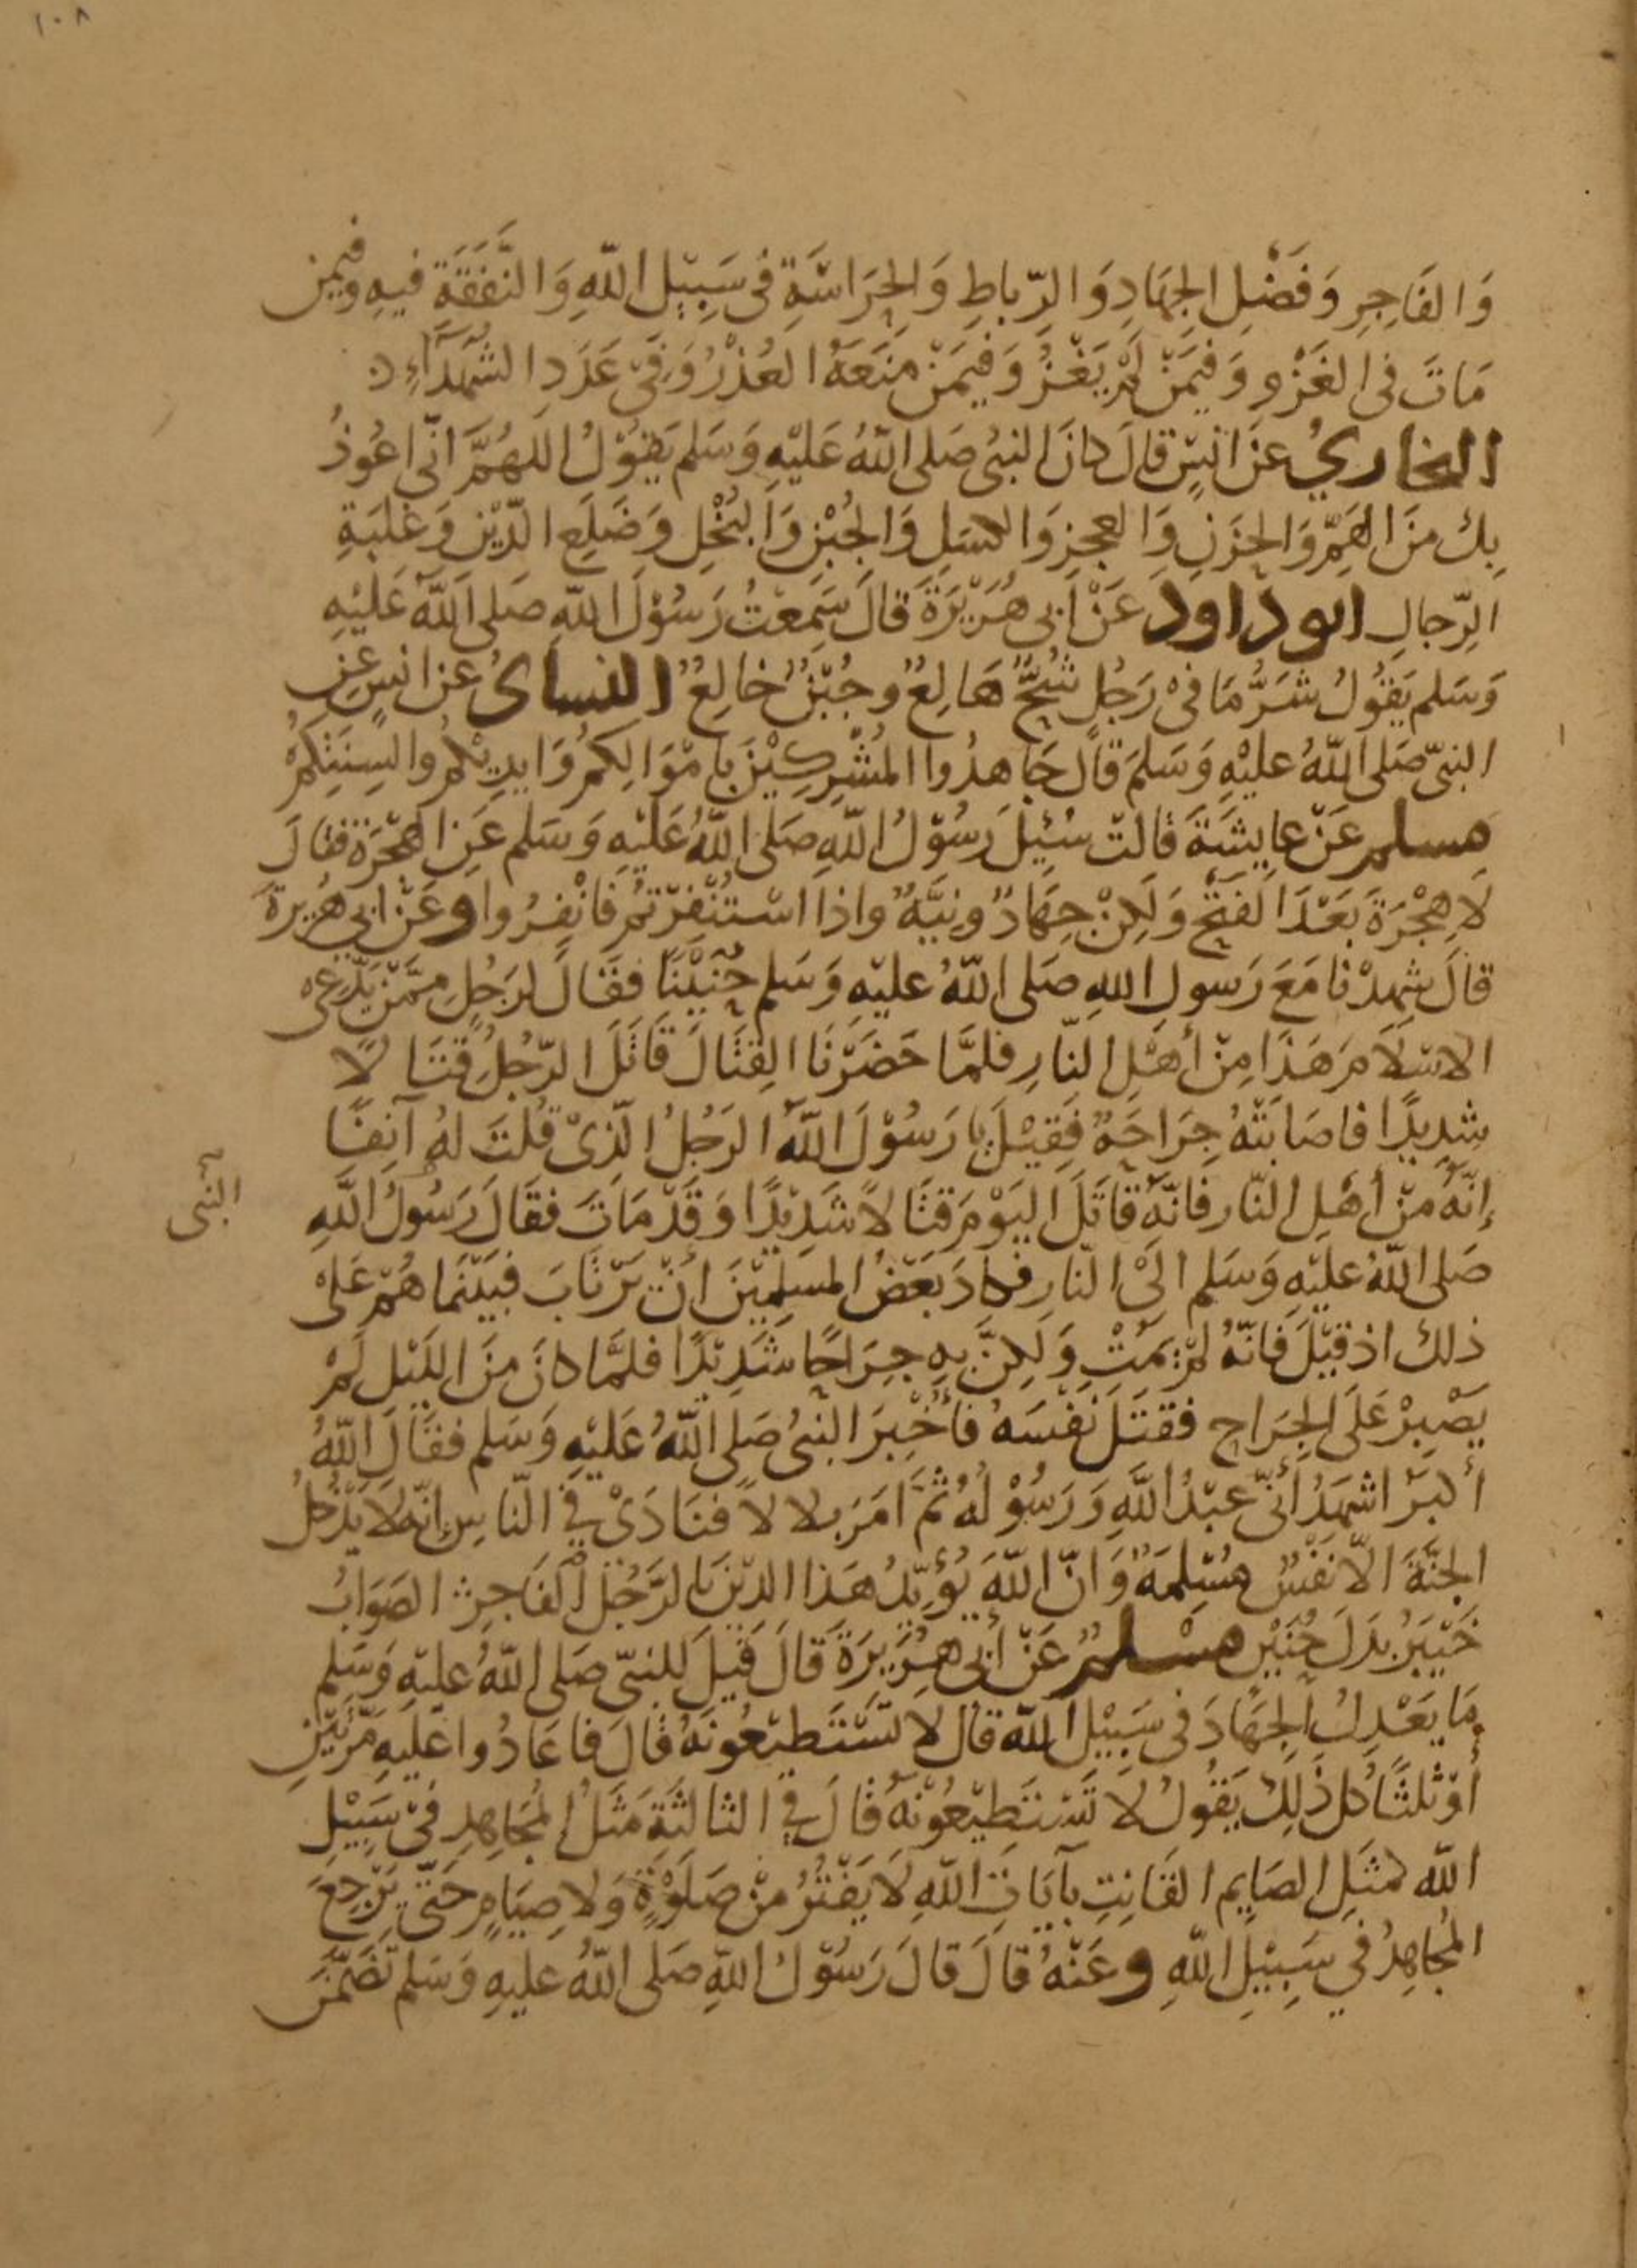 ١٠٨
وَالفَاجِرِ وَفَضْلِ الجِهَادِ وَالرِّباطِ وَالحِرَاسَةِ فى سَبِيْلِ اللّهِ وَالنَّفَقَةِ فيهِ وفيمن
مَاتَ فى الغَزْوِ وَفيمَنْ لَمْ يَغْزُ وَفيمَنْ مَنَعَهُ العُذْرُ وَفِىْ عَدَدِ الشُهَدَآءِ
البخاريُ عَنْ انَسٍ قالَ كانَ النبىُ صَلى اللّهُ عَليْهِ وَسَلم يَقوْلُ اللهُمَّ انّى اعُوذُ
بِكَ منَ الهَمِّ وَالحَزَنِ وَالعجزِ وَالكسَلِ وَالجُبْنِ وَالبُخْلِ وَضَلَعِ الدّيْنِ وَغَلبَةِ
الرّجالِ ابوداود عَنْ اَبى هُرَيْرَةَ قالَ سَمِعْتُ رَسُوْلَ اللّهِ صَلى اللّهُ عَليْهِ
وَسَلم يَقُوْلُ شَرُّ مَا فىْ رَجُلٍ شُحٌّ هَالِعٌ وجُبْنٌ خالِعٌ النساىُ عن انسٍ عنِ
النبىّ صَلى اللّهُ عليْهِ وَسَلمَ قالَ جَاهدُوا المُشْرِكِيْنَ بِامْوَالِكمُ وَايدِيْكمُ والسِنَتِكمُ
مسلم عَنْ عايشَةَ قالتْ سُئِلَ رَسُوْلُ اللّهِ صَلى اللّهُ عَليْهِ وَسَلم عَنِ الهجْرَةِ فقالَ
لَاهِجْرَةَ بَعْدَ الفَتْحِ وَلَكِنْ جِهَادٌ وَنِيَّةٌ واذا اسْتُنْفِرْتُمْ فَانْفِرُوا وعَنْ ابي هُرَيرَةَ
قالَ شهِدْنا مَعَ رَسولِ اللهِ صَلى اللّهُ عليْهِ وَسَلم حُنَيْنًا فقَالَ لرَجُلٍ ممَّنْ يدّعِى
الاسْلَامَ هَذَا مِنْ أهْلِ النّارِ فلمَّا حَضَرْنَا القِتَالَ قَاتَلَ الرّجُلُ قتَالًا
شدِيدًا فاصَابَتْهُ جِرَاحَةٌ فَقِيْلَ يا رَسُوْلَ اللّهِ الرَجُلُ الّذِىْ قُلتَ لهُ آنِفًا
إنّهُ مِنْ أهْلِ النّارِ فَانّهُ قَاتَلَ اليَوْمَ قتَالًا شَدِيْدًا وَقَدْ مَاتَ فقَالَ رَسُولُ اللّهِ
النّبى
صَلى اللّهُ عليْهِ وَسَلم الَىْ النّارِ فكادَ بَعْضُ المسْلِمِيْنَ انْ يَرْتَابَ فبَيْنَمَا هُمْ عَلىْ
ذلكَ اذ قيْلَ فَانّهُ لَمْ يَمُتْ وَلَكِنَّ بِهِ جِرَاحًا شَدِيْدًا فلمَّا كانَ منَ اللَيْلِ لَمْ
يَصْبِرْ عَلَى الجِرَاحِ فقَتَلَ نَفْسَهُ فَأخْبِرَ النبىُ صَلى اللّهُ عَليْهِ وَسَلم فقَالَ اللّهُ
أكبَرُ اشهَدُ أنّى عبْدُ اللّهِ وَرَسُوْلُهُ ثمَّ امَرَ بلالاً فنَادَىْ فِي النّاسِ إنّهُ لَا يَدْخُلُ
الجنَّةَ الّا نفْسٌ مُسْلِمَةٌ وَانّ اللّهَ يُؤيّدُ هَذا الدّيْنَ بالرَّجُلِ الفَاجِرِ الصَوَابُ
خَيْبَرُ بَدَلَ حُنَيْنِ مسْلمٌ عَنْ أبى هُرَيرَةَ قَالَ قيْلَ للنبىّ صَلى اللّهُ عليْهِ وَسَلم
مَا يَعْدِلُ الجهَادَ فى سَبِيْلِ اللّهِ قالَ لَا تَسْتَطيْعُونَهُ قالَ فاعَادُوا عَليْهِ مَرّتَيْنِ
أوْثلثًا كلّ ذَلِكَ يَقُوْلُ لَا تَسْتَطِيْعُوْنَهُ قالَ فِي الثالثَةِ مَثَلُ المُجَاهِدِ فىْ سَبِيْلِ
اللّهِ كمثَلِ الصَايِمِ القَانِتِ بآيَاتِ اللّهِ لَا يَفْتُرُ مِنْ صَلَوةٍ وَلَا صِيَامٍ حَتّى يَرْجِعَ
المُجَاهِدُ في سَبِيْلِ اللّهِ وعَنْهُ قَالَ قالَ رَسُوْلُ اللّهِ صَلى اللّهُ عليْهِ وَسَلم تَضَمَّنَ